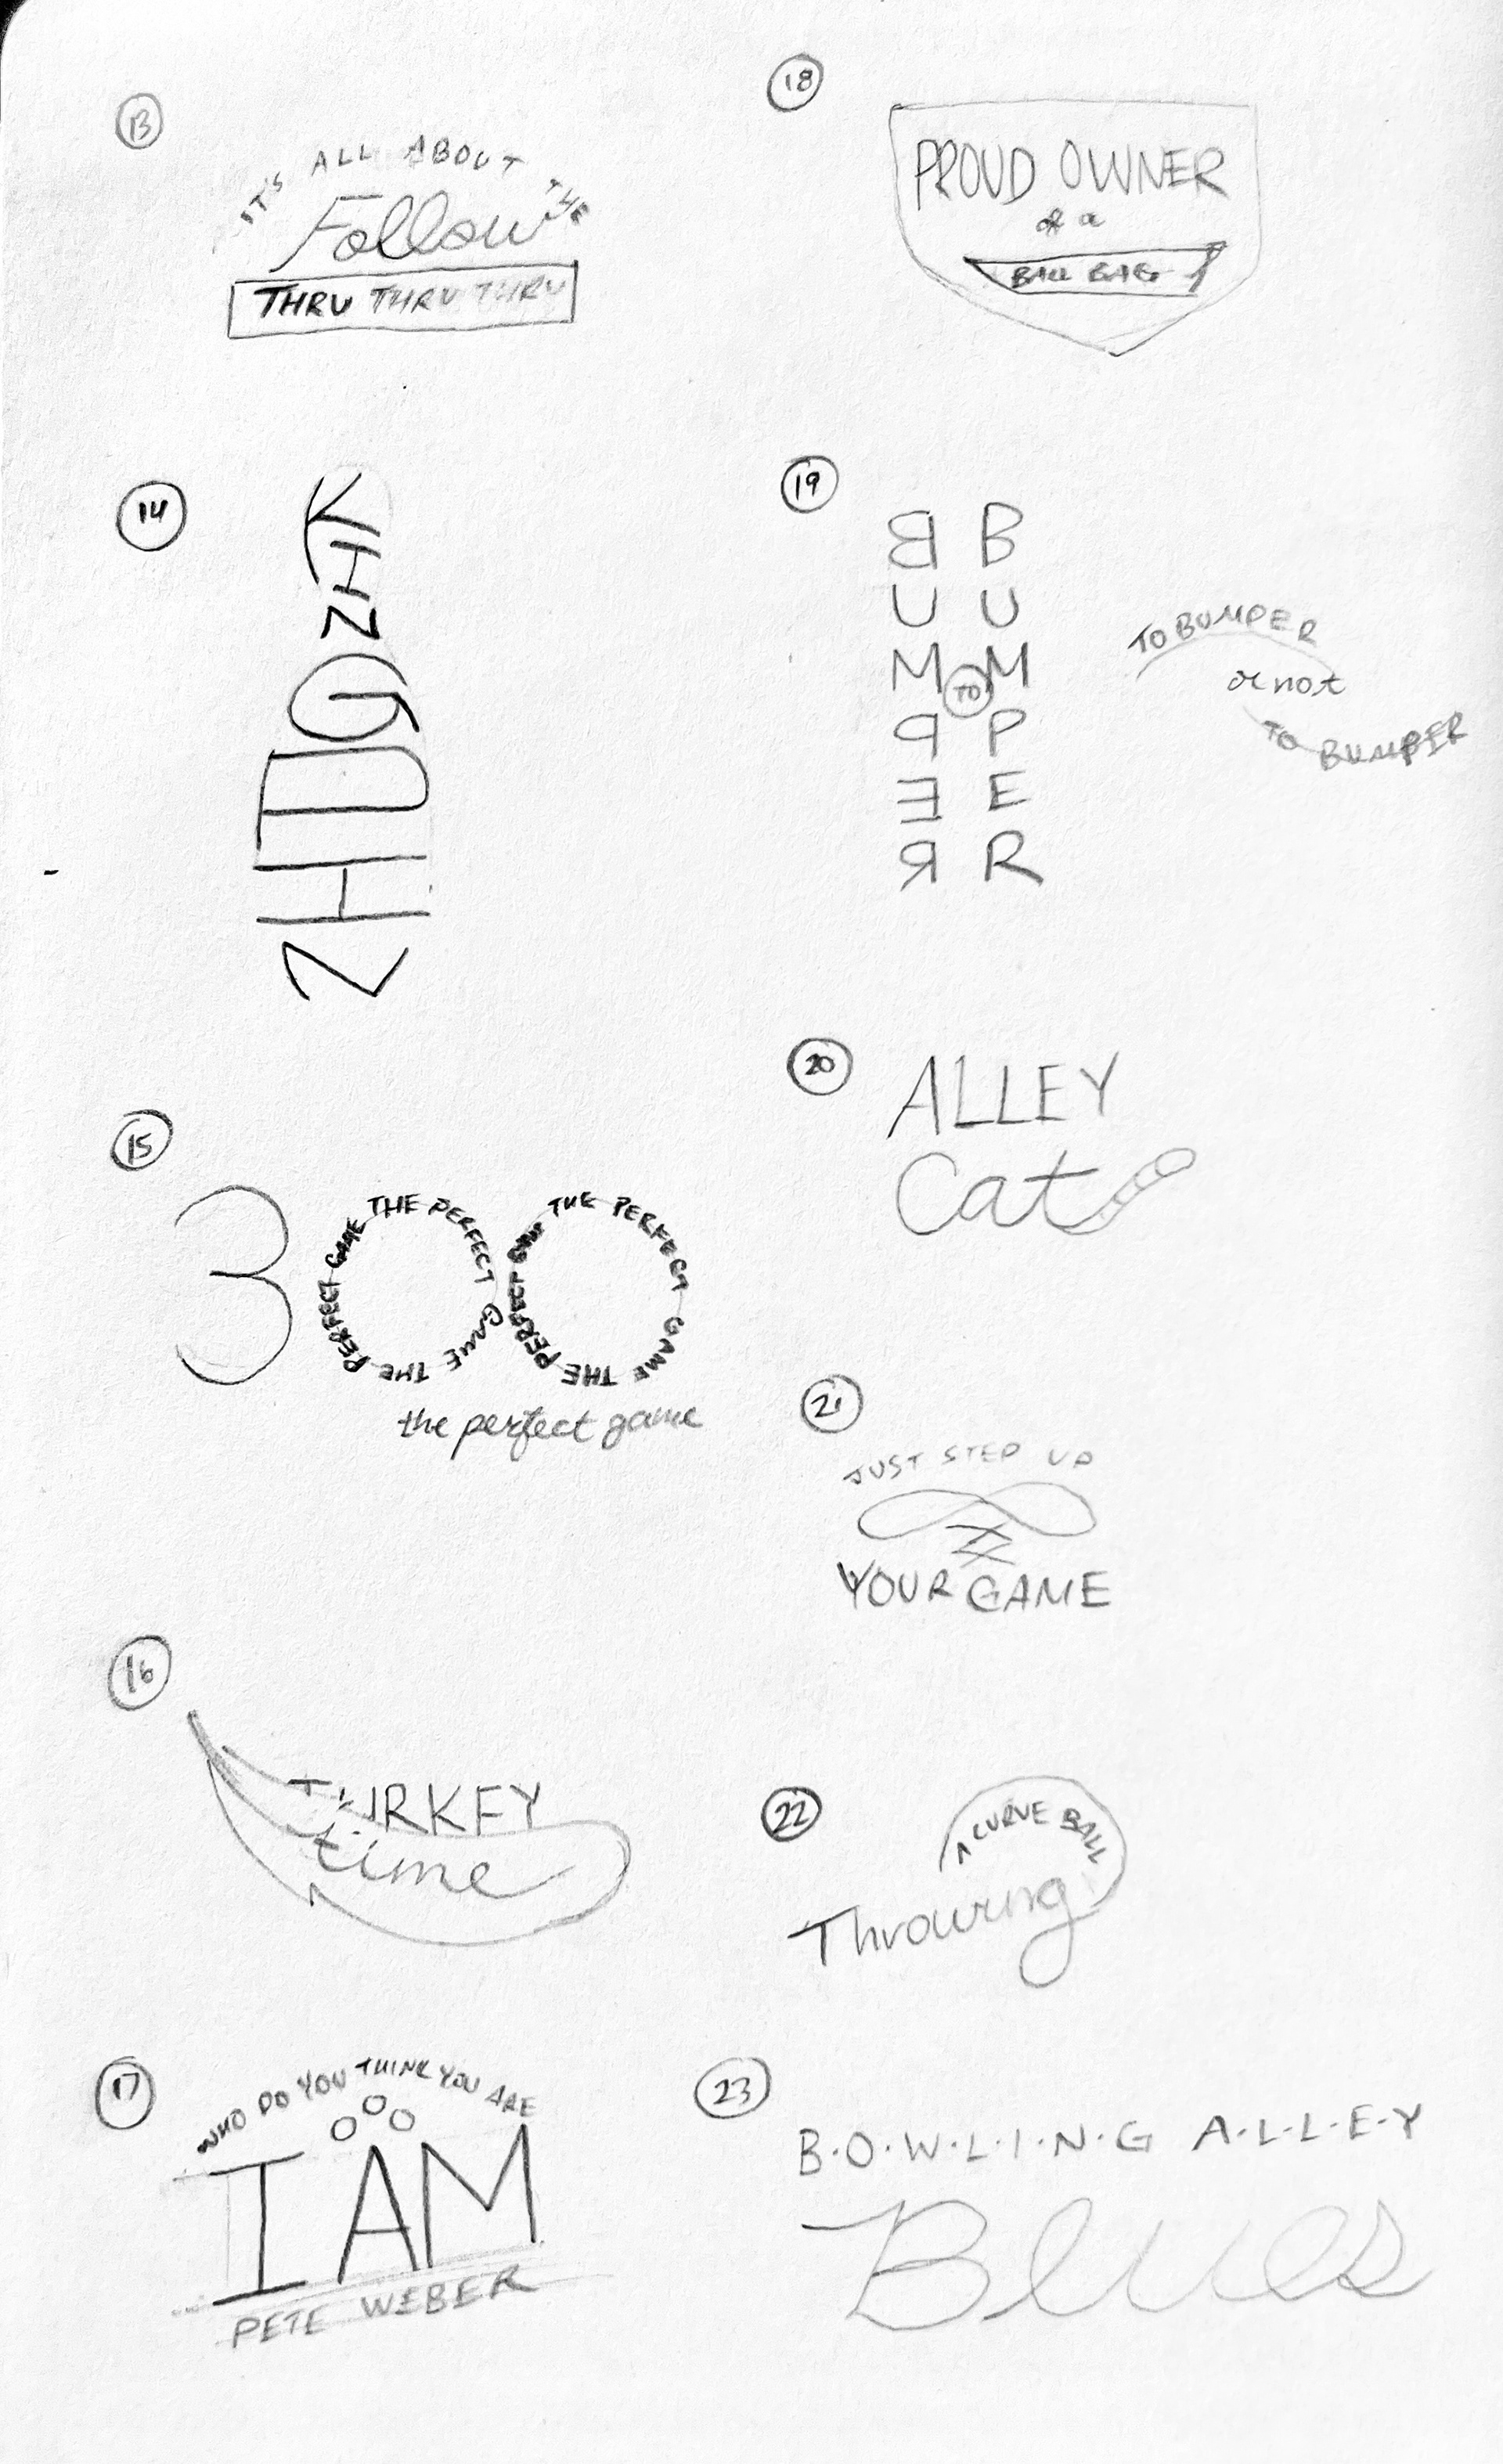 13
IT'S ALL ABOUT THE
Follow
THRU THRU THRU
14
KINGPIN
15
300
THE PERFECT GAME THE PERFECT GAME
THE PERFECT GAME THE PERFECT GAME
the perfect game
16
TURKEY
time
17
WHO DO YOU THINK YOU ARE
I AM
PETE WEBER
18
PROUD OWNER
of a
BALL BAG
19
BUMPER
TO
BUMPER
TO BUMPER
or not
TO BUMPER
20
ALLEY
Cat
21
JUST STEP UP
YOUR GAME
22
Throwing
A CURVE BALL
23
B·O·W·L·I·N·G A·L·L·E·Y
Blues